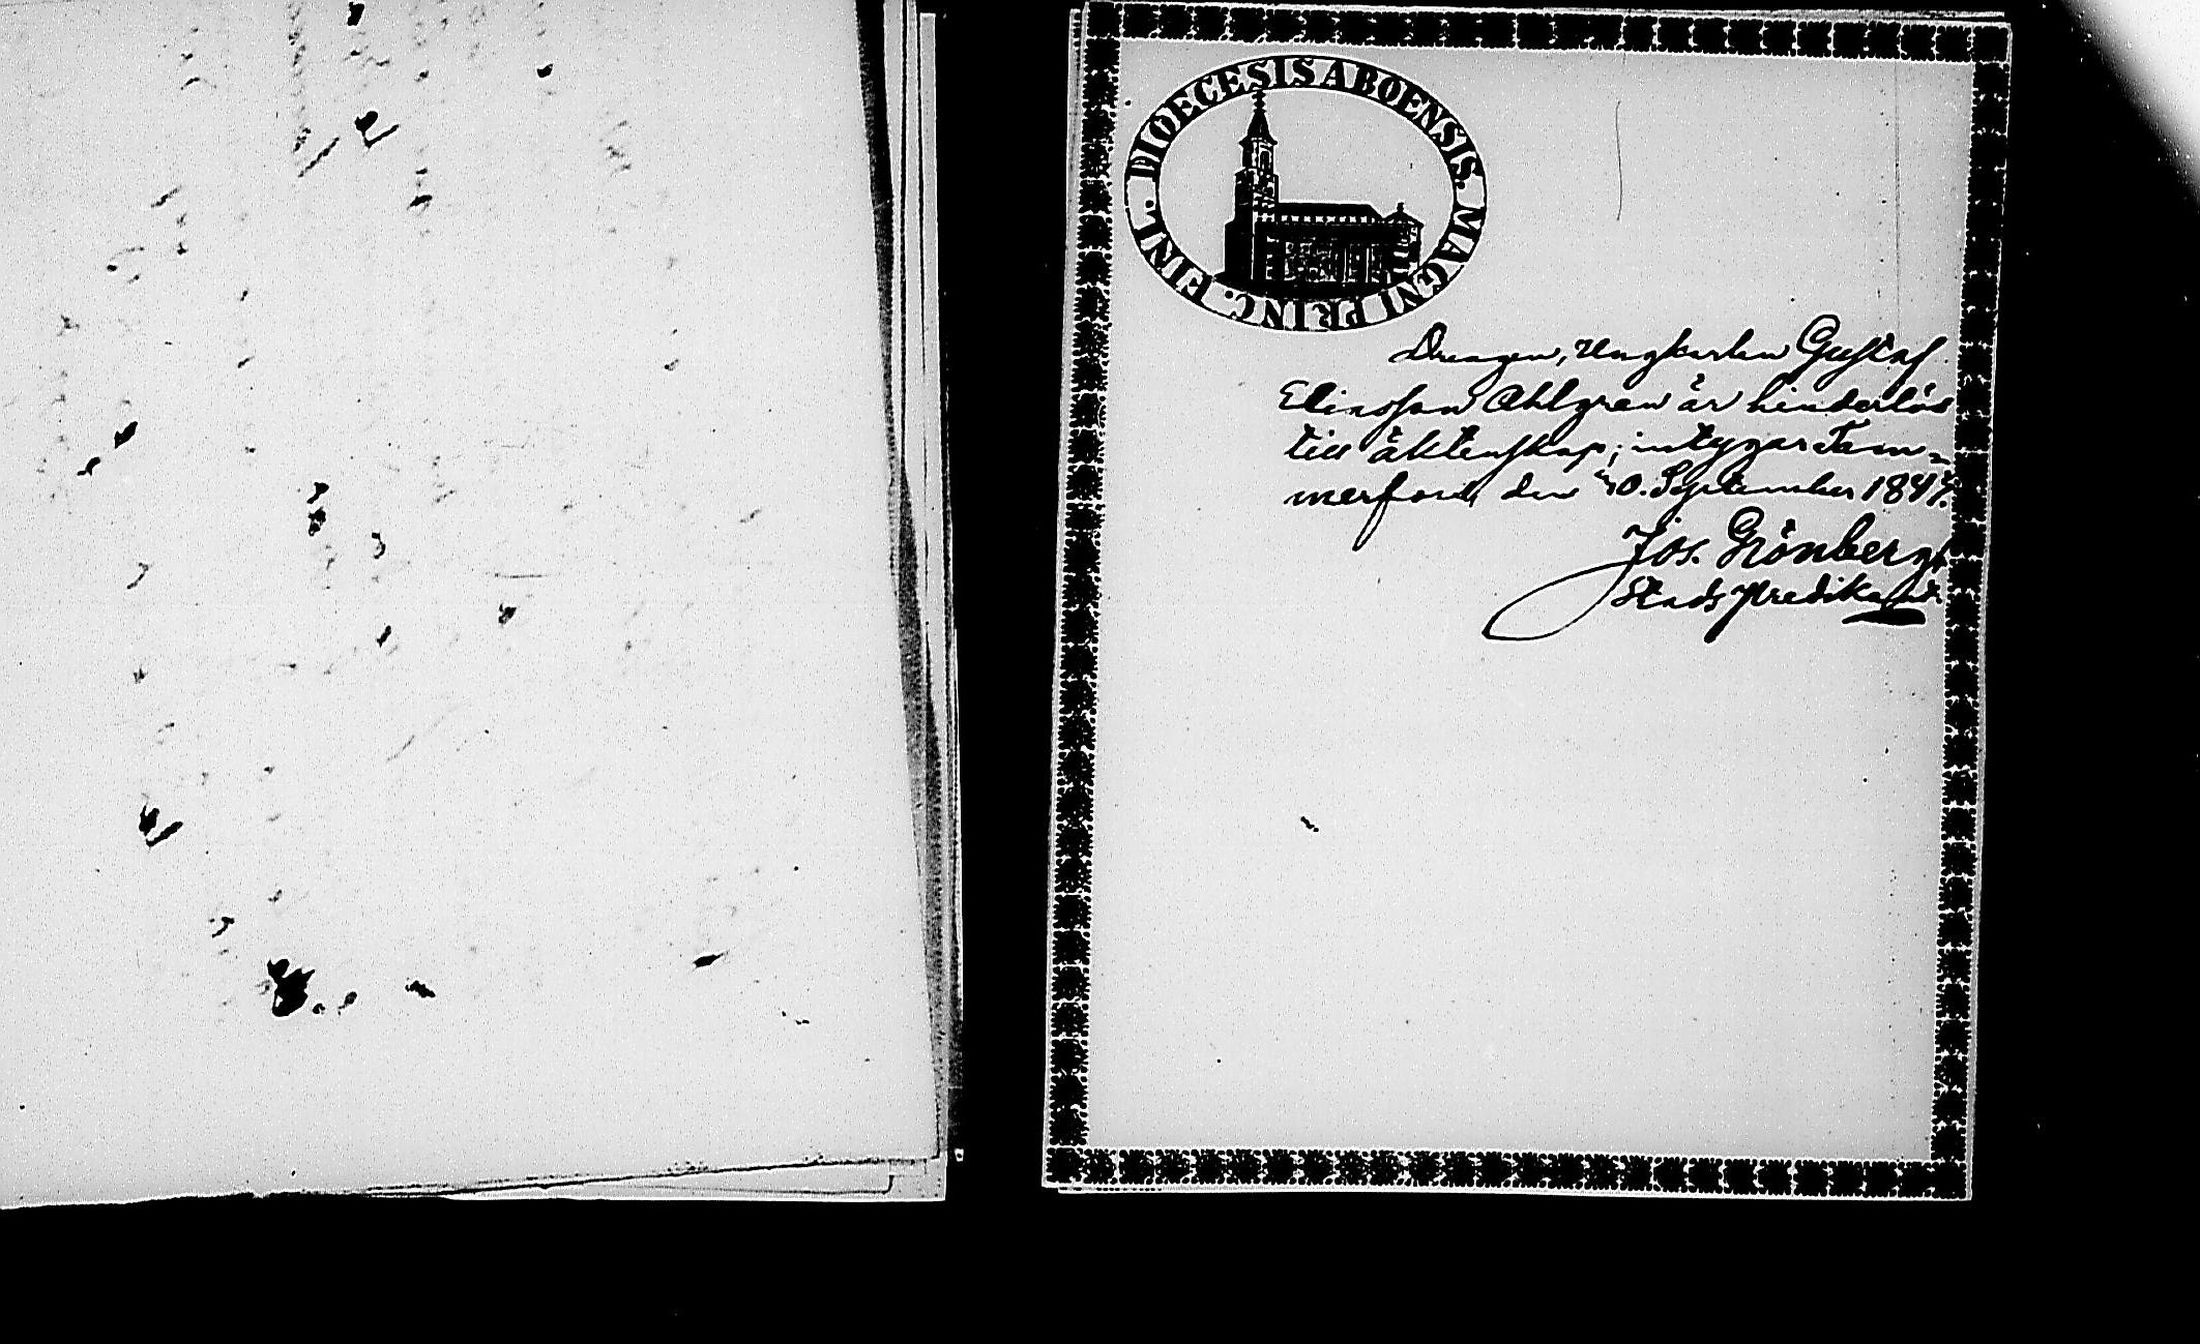 DIOECESIS ABOENSIS. MAGNI PRINC. FINL.
Drengen, Ungkarlen Gustaf
Eliasson Ahlgren är hinderlös
till äktenskap; intygar Tam=
merfors, den 10. September 1847.
Jos. Grönberg,
Stads Predikant.